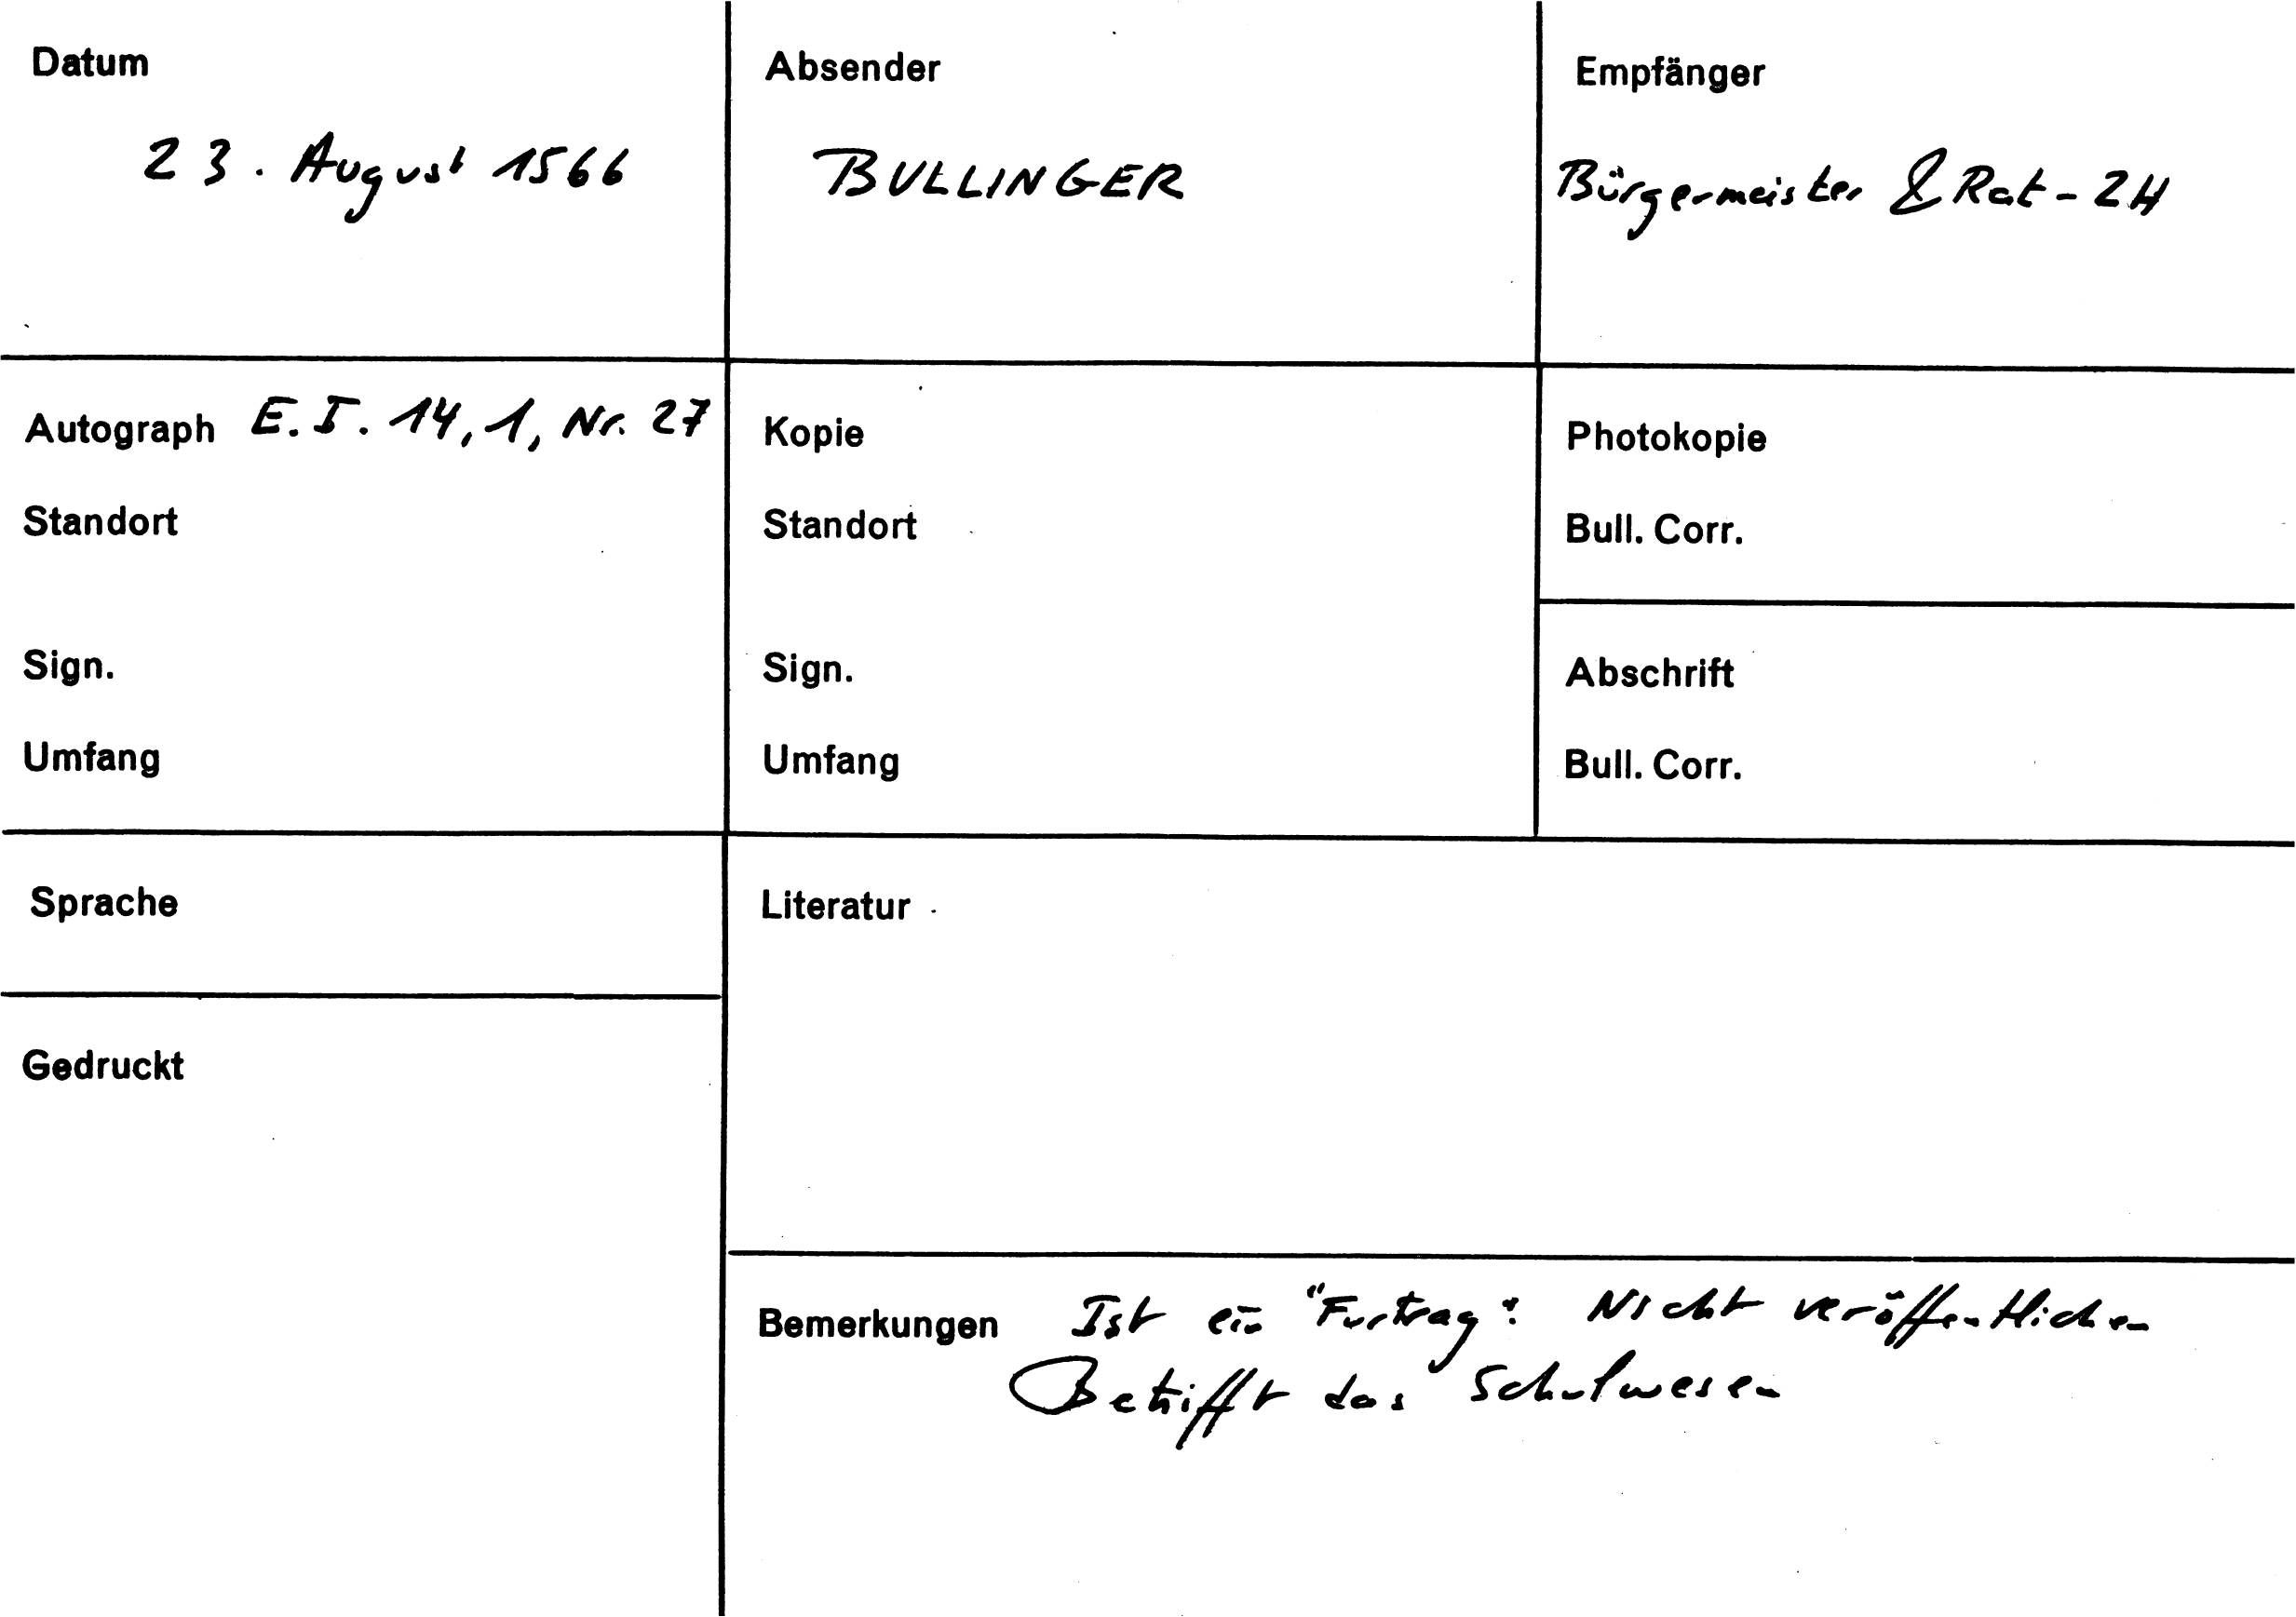 Datum
23. August 1566
Absender
BULLINGER
Empfänger
Bürgermeister & Rat - ZH
Autograph E. I. 14, 1, Nr. 27
Standort
Sign.
Umfang
Kopie
Standort
Sign.
Umfang
Photokopie
Bull. Corr.
Abschrift
Bull. Corr.
Sprache
Gedruckt
Literatur
Bemerkungen Ist ein "Furtrag": Nicht veröffentlichen
Betrifft das Schulwesen